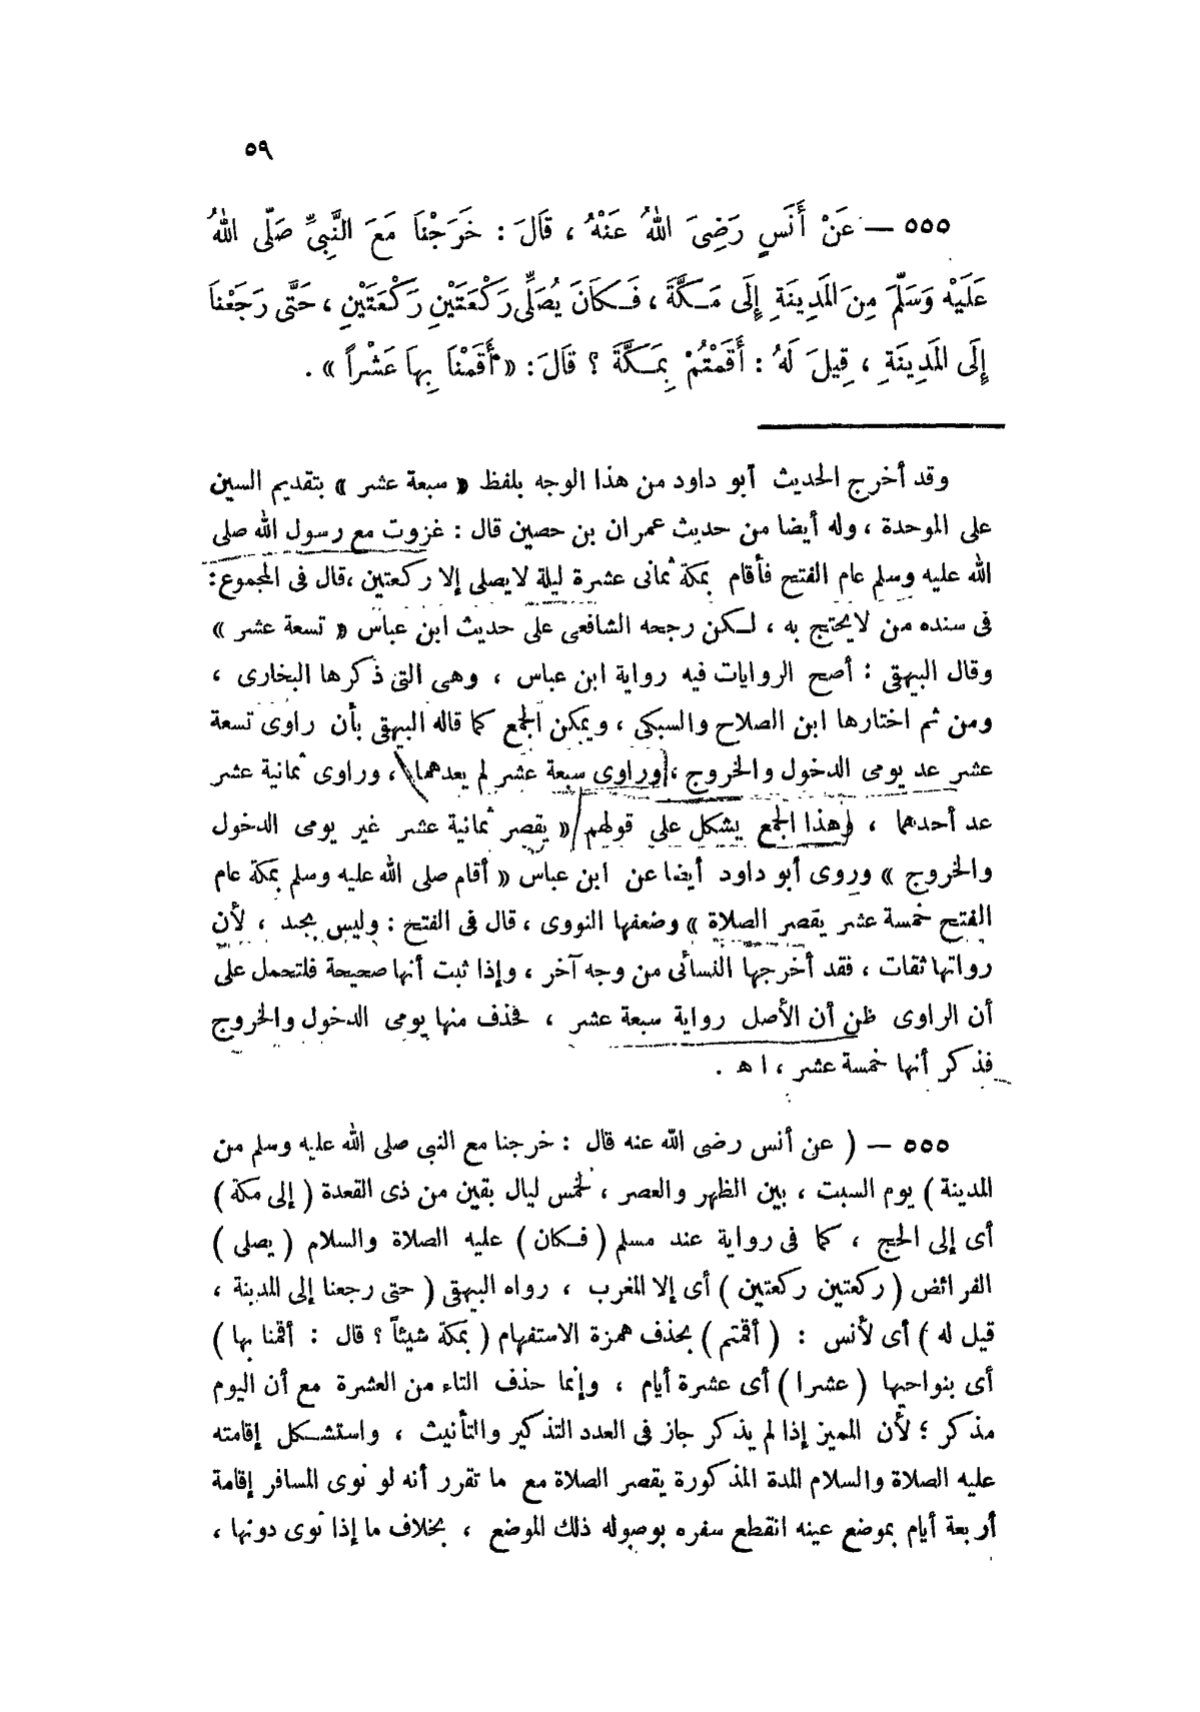 ٥٩
٥٥٥ — عَنْ أَنَسٍ رَضِىَ اللهُ عَنْهُ ، قَالَ : خَرَجْنَا مَعَ النَّبِىِّ صَلَّى اللهُ
عَلَيْهِ وَسَلَّمَ مِنَ المَدِينَةِ إِلَى مَكَّةَ ، فَكَانَ يُصَلِّى رَكْعَتَيْنِ رَكْعَتَيْنِ ، حَتَّى رَجَعْنَا
إِلَى المَدِينَةِ ، قِيلَ لَهُ : أَقَمْتُمْ بِمَكَّةَ ؟ قَالَ : « أَقَمْنَا بِهَا عَشْراً » .
وقد أخرج الحديث أبو داود من هذا الوجه بلفظ « سبعة عشر » بتقديم السين
على الموحدة ، وله أيضا من حديث عمران بن حصين قال : غزوت مع رسول الله صلى
الله عليه وسلم عام الفتح فأقام بمكة ثمانى عشرة ليلة لايصلى إلا ركعتين ،قال فى المجموع:
فى سنده من لايحتج به ، لكن رجحه الشافعى على حديث ابن عباس « تسعة عشر »
وقال البيهقى : أصح الروايات فيه رواية ابن عباس ، وهى التى ذكرها البخارى ،
ومن ثم اختارها ابن الصلاح والسبكى ، ويمكن الجمع كما قاله البيهقى بأن راوى تسعة
عشر عد يومى الدخول والخروج ، وراوى سبعة عشر لم يعدهما ، وراوى ثمانية عشر
عد أحدهما ، وهذا الجمع يشكل على قولهم « يقصر ثمانية عشر غير يومى الدخول
والخروج » وروى أبو داود أيضا عن ابن عباس « أقام صلى الله عليه وسلم بمكة عام
الفتح خمسة عشر يقصر الصلاة » وضعفها النووى ، قال فى الفتح : وليس بجيد ، لأن
رواتها ثقات ، فقد أخرجها النسائى من وجه آخر ، وإذا ثبت أنها صحيحة فلتحمل على
أن الراوى ظن أن الأصل رواية سبعة عشر ، فحذف منها يومى الدخول والخروج
فذكر أنها خمسة عشر ، ا ه .
٥٥٥ — ( عن أنس رضى الله عنه قال : خرجنا مع النبى صلى الله عليه وسلم من
المدينة ) يوم السبت ، بين الظهر والعصر ، لخمس ليال بقين من ذى القعدة ( إلى مكة )
أى إلى الحج ، كما فى رواية عند مسلم ( فكان ) عليه الصلاة والسلام ( يصلى )
الفرائض ( ركعتين ركعتين ) أى إلا المغرب ، رواه البيهقى ( حتى رجعنا إلى المدينة ،
قيل له ) أى لأنس : ( أقمتم ) بحذف همزة الاستفهام ( بمكة شيئاً ؟ قال : أقمنا بها )
أى بنواحيها ( عشرا ) أى عشرة أيام ، وإنما حذف التاء من العشرة مع أن اليوم
مذكر ؛ لأن المميز إذا لم يذكر جاز فى العدد التذكير والتأنيث ، واستشكل إقامته
عليه الصلاة والسلام المدة المذكورة يقصر الصلاة مع ما تقرر أنه لو نوى المسافر إقامة
أربعة أيام بموضع عينه انقطع سفره بوصوله ذلك الموضع ، بخلاف ما إذا نوى دونها ،